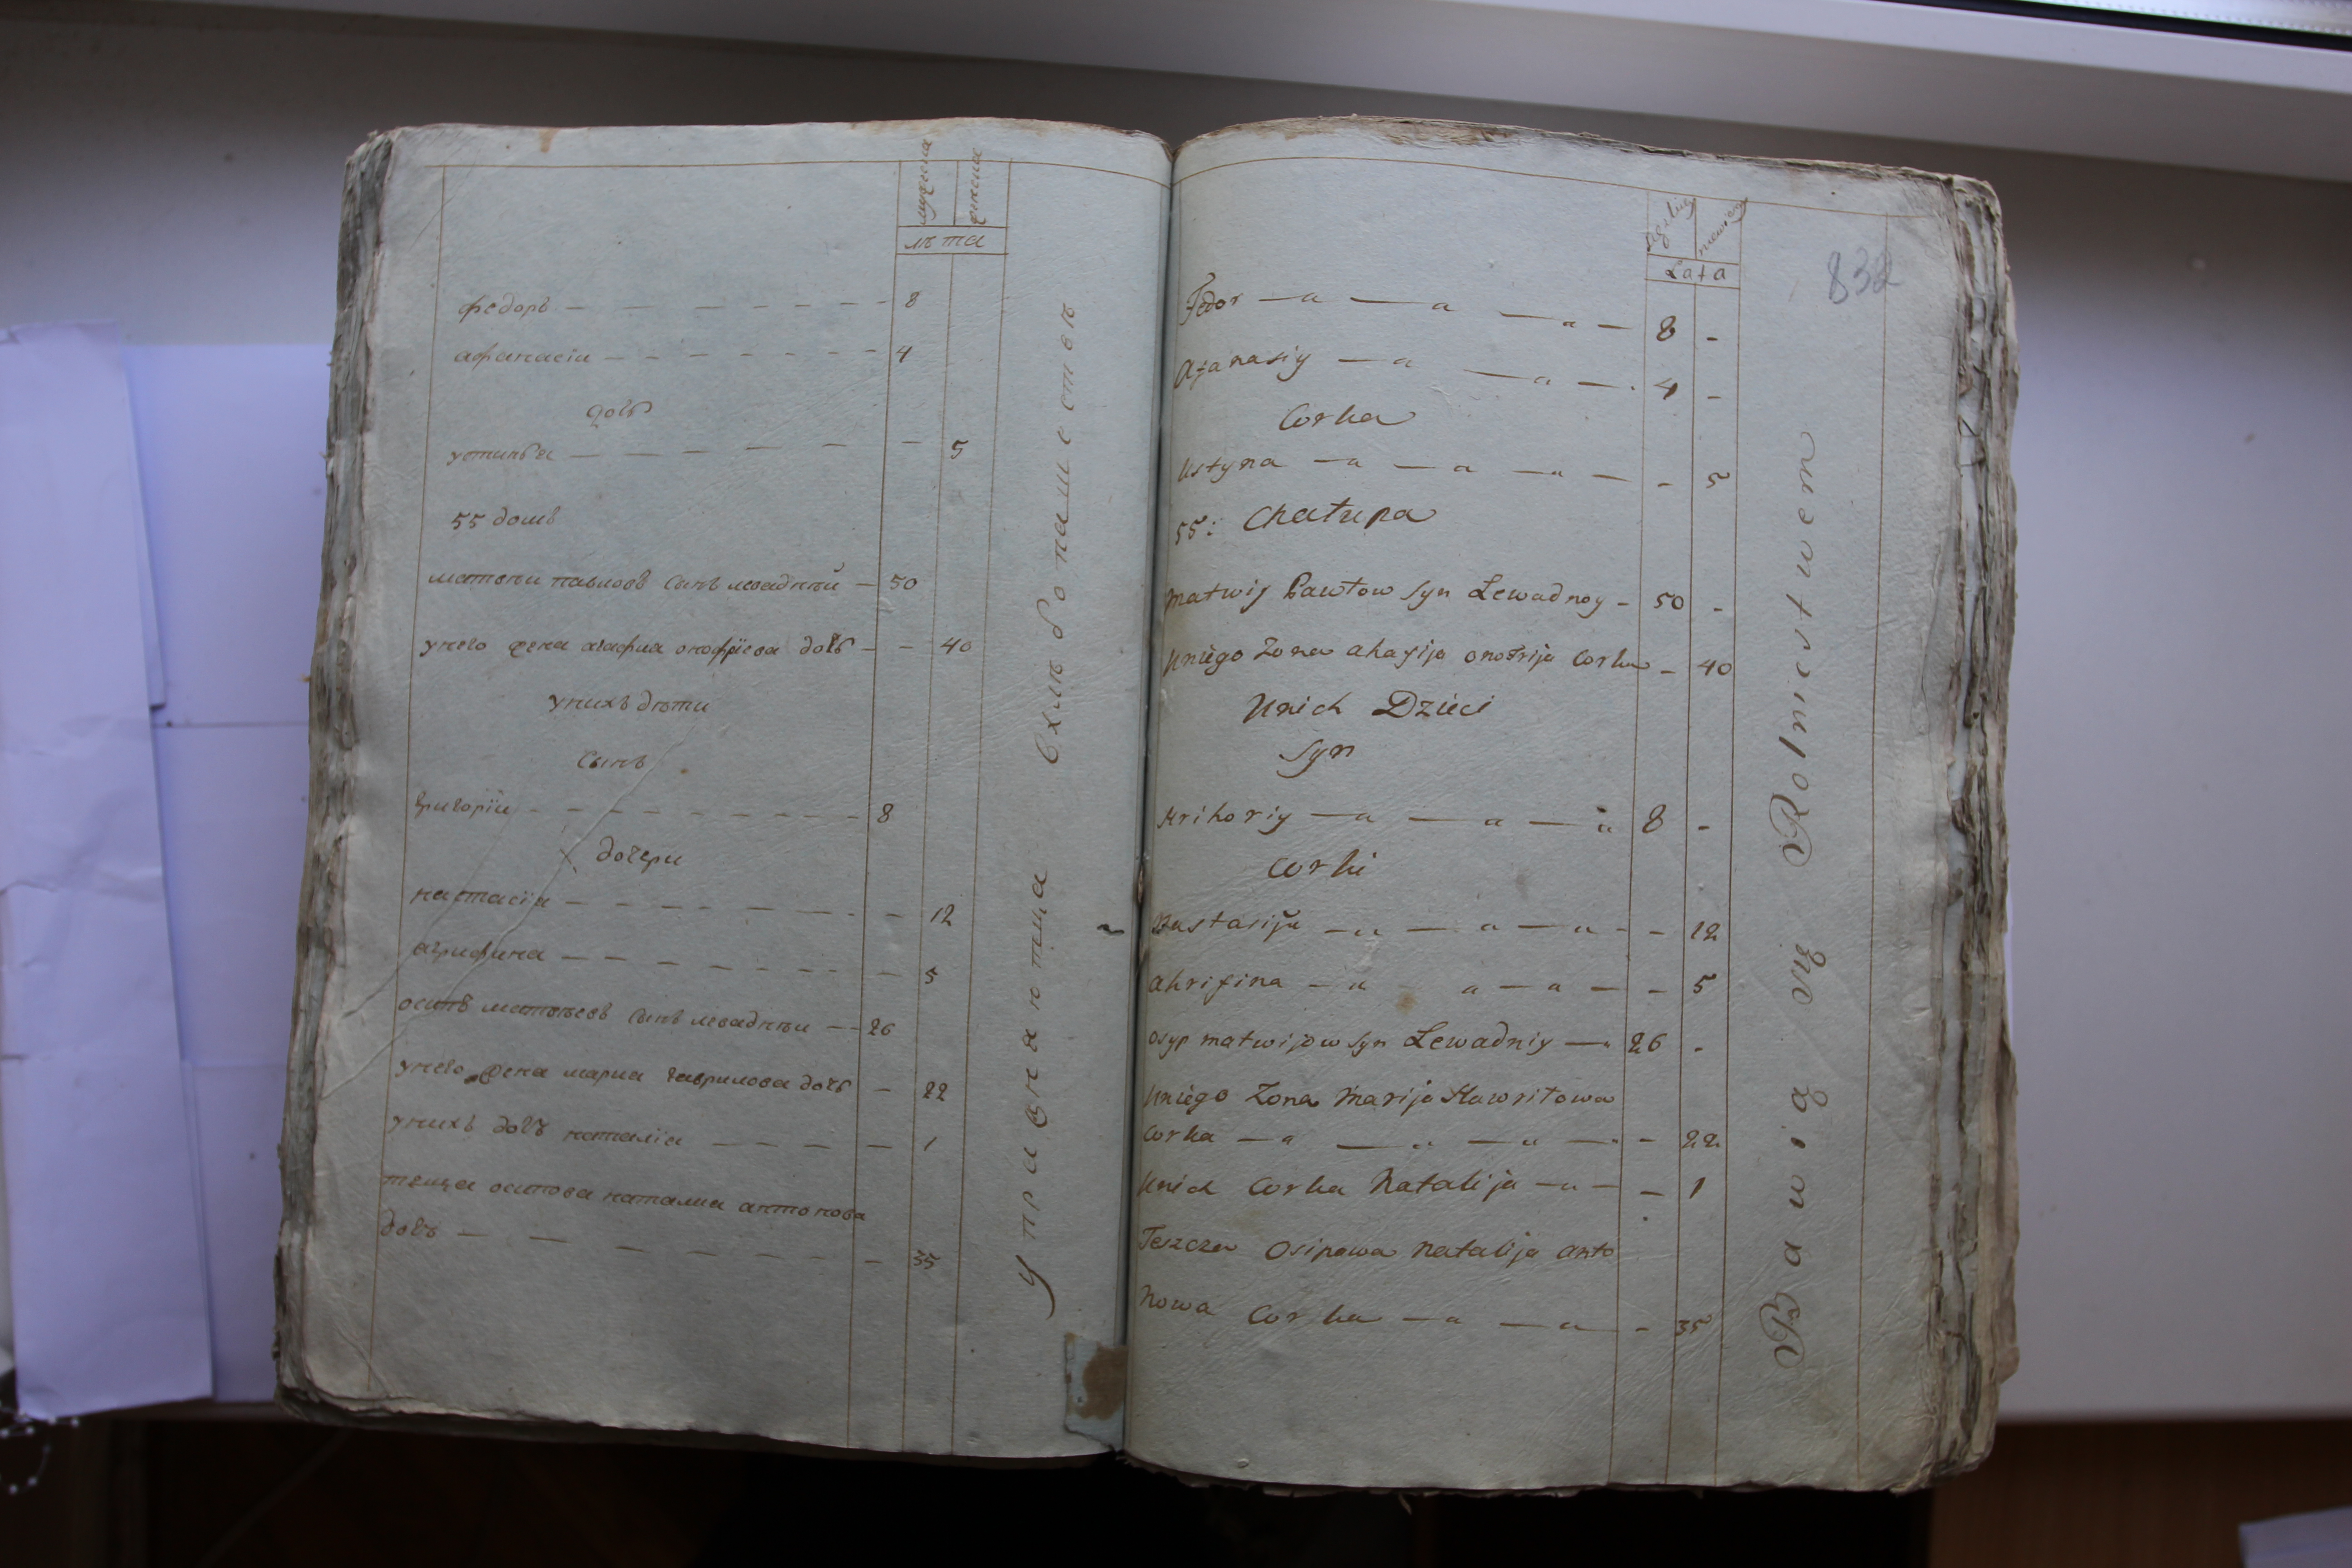 мужеска
женска
лѣта
федоръ — — — — — — 8
афанасiи — — — — — — 4
дочь
устинья — — — — — — 5
55 домъ
матвѣи павловъ сынъ левадный — 50
унего жена агафиа онофрiева дочь — — 40
унихъ дѣти
сынъ
григорiи — — — — — — 8
дочери
настасiа — — — — — — 12
агрифина — — — — — — 5
осипъ матвѣевъ сынъ левадныи — — 26
унего жена мариа гаврилова дочь — 22
унихъ дочь наталiа — — — — — 1
теща осипова наталиа антонова
дочь — — — — — — 35
упражняютца вхлѣбопашествѣ
832
Lata
Fedor — a — a — a — 8 -
Afanasiy — a — a — 4 -
Corka
Ustyna — a — a — a — - 5
55: Chałupa
Matwij Pawłow Syn Lewadnoy - 50 -
Uniego Zona Ahafija Onofrija Corka - 40
Unich Dzieci
Syn
Hrihoriy — a — a — a 8 -
Corki
Nastasija — a — a — a - - 12
Ahrifina — a a — a — - 5
Osyp Matwijow Syn Lewadniy — 26 -
Uniego Zona Marija Hawriłowa
Corka — a — a — a — - 22
Unich Corka Natalija — a — - 1
Teszcza Osipowa Natalija Anto
Nowa Corka — a — a — - 35
Bawią się Rolnictwem